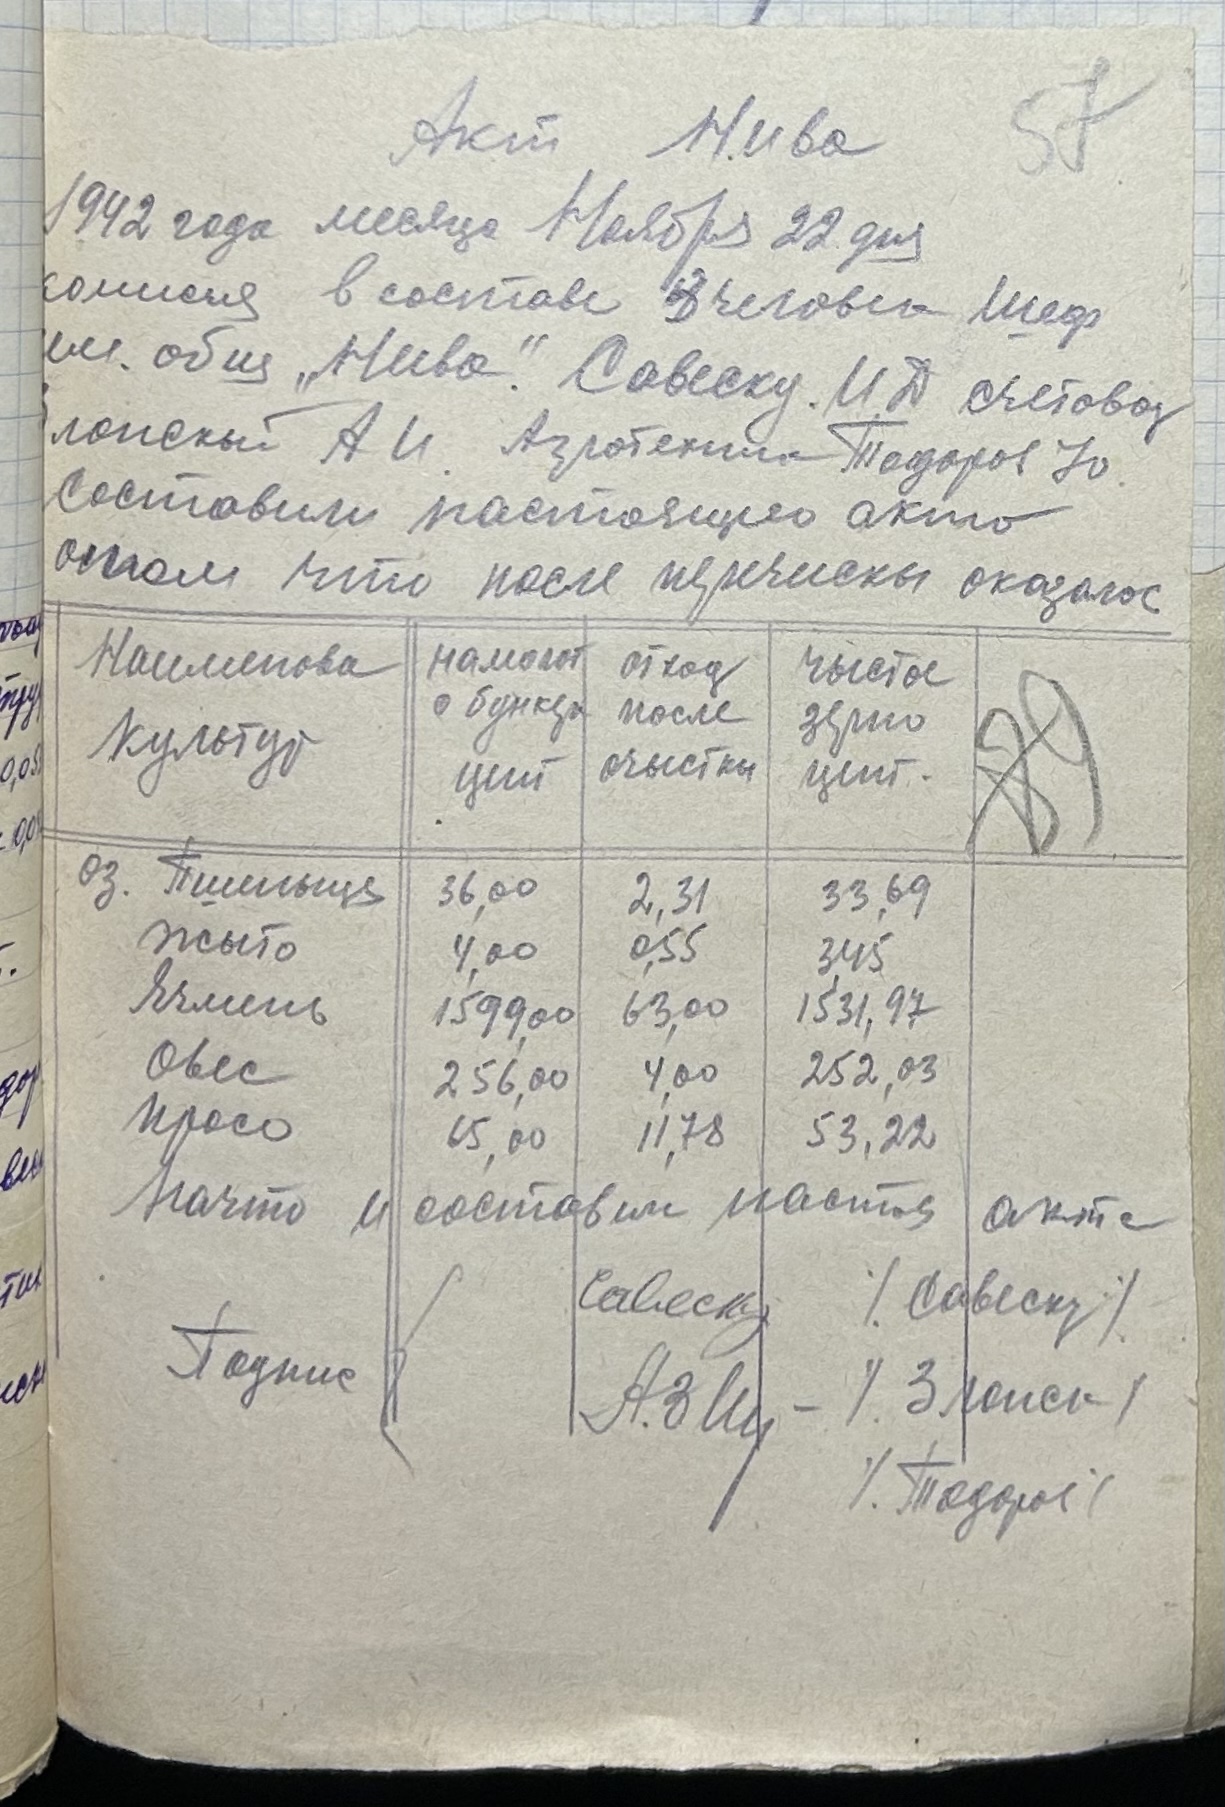 57
Акт Нива
1942 года месяца Ноября 22 дня
комисия в составе 3 человека Шеф
им. общ „Нива". Савеску. И Д счетовод
лопский А И. Агротехник Тодоров Ю.
Составили настоящего акта
о том что после перечиски оказалос
Наименова Культур | намолот с бункера цнт | отход после очыстки | чыстое зерно цент. | 89
оз. Пшеныця 36,00 2,31 33,69
жыто 4,00 0,55 3,45
Ячмень 1599,00 63,00 1531,97
Овес 256,00 4,00 252,03
просо 65,00 11,78 53,22
начто и составили настоя акта
Савеску /. Савеску /.
Подпис
А.З /. Злопск /
/. Тодоров /